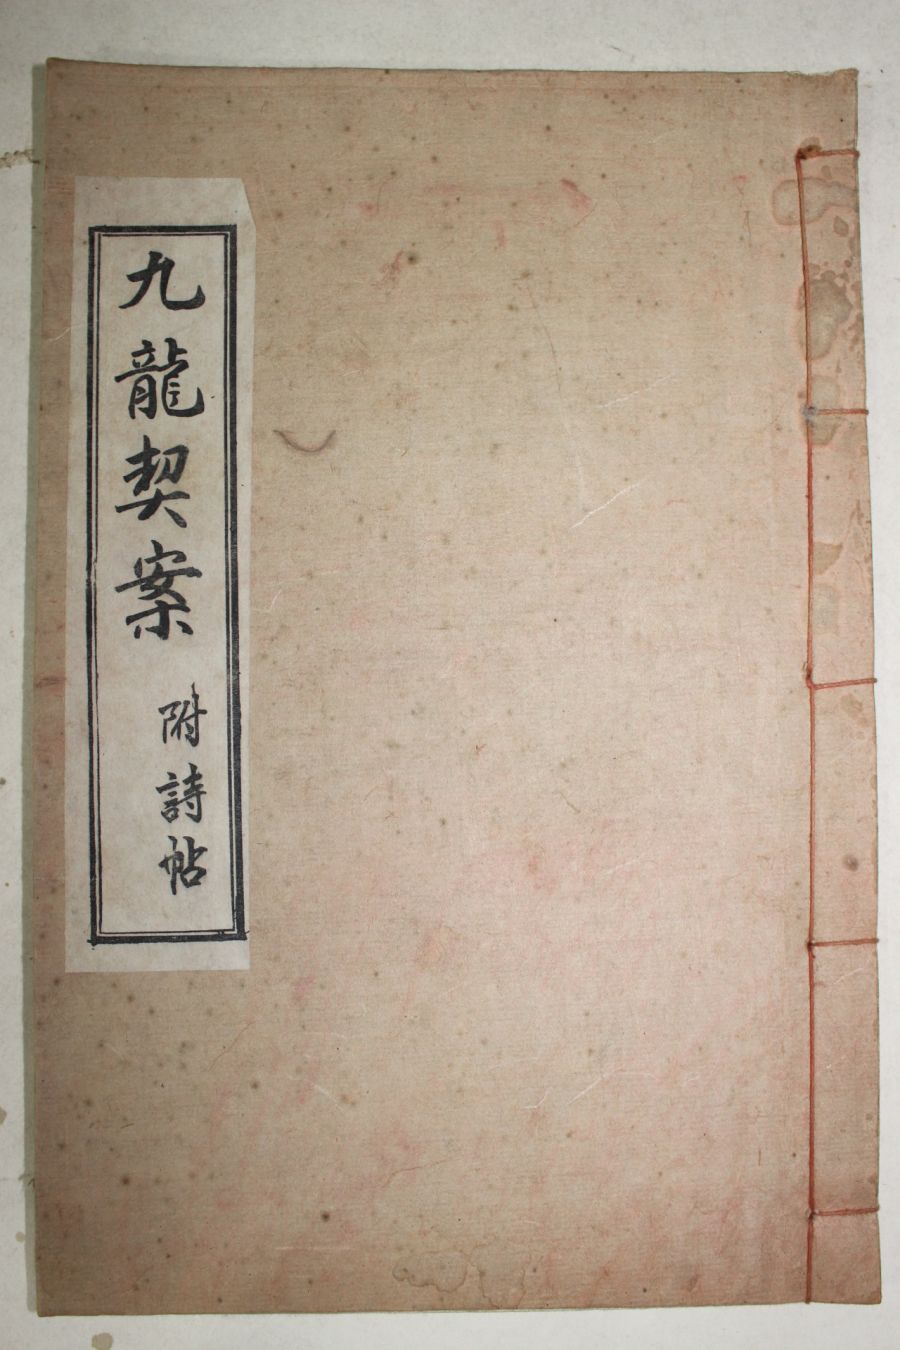 九龍契案
附詩帖